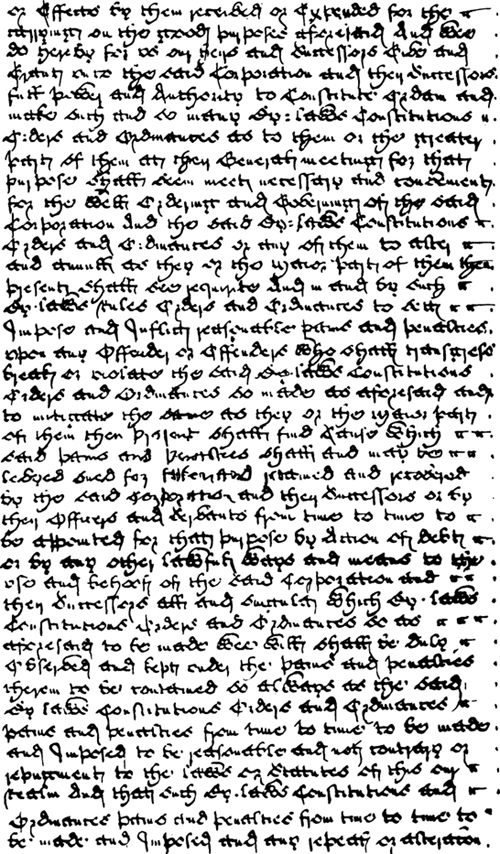 or Effects by them received or Expended for the
carrying on the good purposes aforesaid And Wee
do hereby for us our heirs and Successors Give and
Grant unto the said Corporation and their Successors
full power and Authority to Constitute Ordain and
make Such and so many By-laws Constitutions
Orders and Ordinances as to them or the greater
part of them att their General meeting for that
purpose Shall seem meet necessary and convenient
for the Well Ordering and Governing of the said
Corporation And the said By-laws Constitutions
Orders and Ordinances or any of them to alter
and annull as they or the major part of them then
present Shall see requisite And in and by such
By-laws Rules Orders and Ordinances to sett
Impose and Inflict reasonable pains and penalties
upon any Offender or Offenders Who shall transgress
break or violate the said By-laws Constitutions
Orders and Ordinances so made as aforesaid and
to mitigate the same as they or the major part
of them then present shall find Cause Which
said pains and penalties shall and may be
levyed sued for retained and recovered
by the said Corporation and their Successors or by
their Officers and Servants from time to time to
be appointed for that purpose by Action of debt
or by any other lawfull Ways and means to the
use and behoof of the said Corporation and
their Successors all and singular Which By-laws
Constitutions Orders and Ordinances so as
aforesaid to be made Wee Will shall be duly
Observed and kept under the pains and penalties
therein to be contained so always as the said
By-laws Constitutions Orders and Ordinances
pains and penalties from time to time to be made
and Imposed to be reasonable and not contrary or
repugnant to the laws or Statutes of this our
realm And that such By-laws Constitutions and
Ordinances pains and penalties from time to time to
be made and Imposed and any repeal or alteration